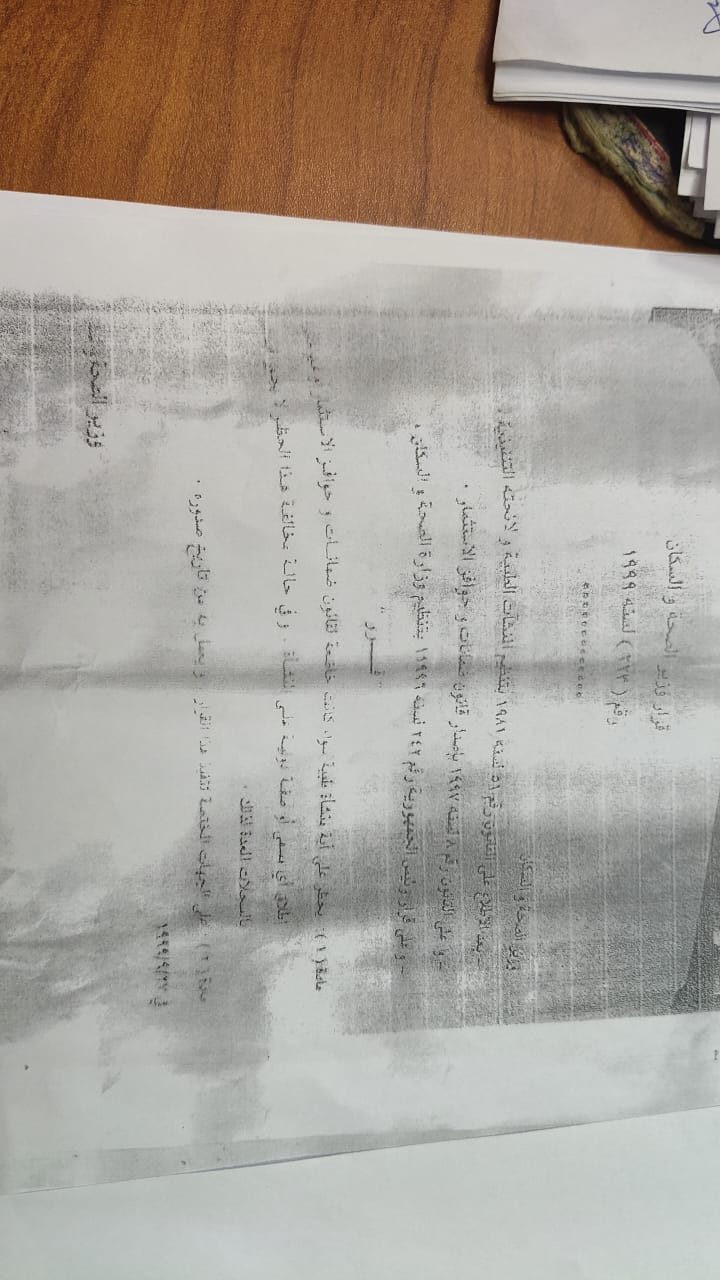 قرار وزير الصحة و السكان
رقم ( ٢٢٣ ) لسنه ١٩٩٩
************
وزير الصحة و السكان
- بعد الاطلاع على القانون رقم ٥١ لسنه ١٩٨١ بتنظيم المنشآت الطبية و لائحته التنفيذية .
- و على القانون رقم ٨ لسنه ١٩٩٧ بإصدار قانون ضمانات و حوافز الاستثمار .
- و على قرار رئيس الجمهورية رقم ٢٤٢ لسنه ١٩٩٦ بتنظيم وزارة الصحة و السكان .
" قـــرر "
مادة ( ١ ) : يحظر على أية منشأة طبية سواء كانت خاضعة لقانون ضمانات و حوافز الاستثمار
إطلاق أي مسمى أو صفة دولية على المنشأة . و في حالة مخالفة هذا الحظر لا يجوز
بالسجلات المعدة لذلك .
مادة ( ٢ ) : على الجهات المختصة تنفيذ هذا القرار . و يعمل به من تاريخ صدوره .
في ١٩٩٩/٩/٢٧
وزير الصحة